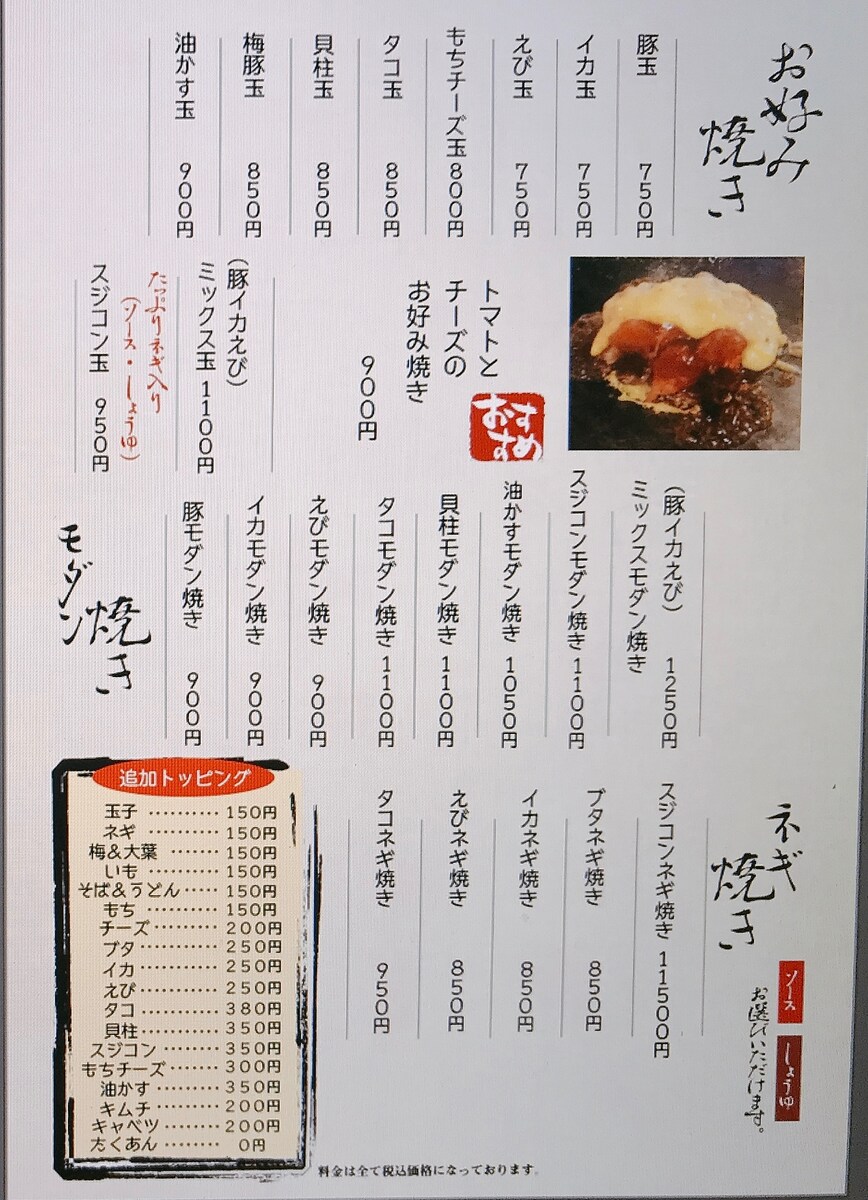 お好み
焼き
豚玉 750円
イカ玉 750円
えび玉 750円
もちチーズ玉 800円
タコ玉 850円
貝柱玉 850円
梅豚玉 850円
油かす玉 900円
おすすめ
トマトと
チーズの
お好み焼き
900円
(豚イカえび)
ミックス玉 1100円
たっぷりネギ入り
(ソース・しょうゆ)
スジコン玉 950円
モダン
焼き
(豚イカえび)
ミックスモダン焼き 1250円
スジコンモダン焼き 1100円
油かすモダン焼き 1050円
貝柱モダン焼き 1100円
タコモダン焼き 1100円
えびモダン焼き 900円
イカモダン焼き 900円
豚モダン焼き 900円
ネギ
焼き
ソース
しょうゆ
お選びいただけます。
スジコンネギ焼き 11500円
ブタネギ焼き 850円
イカネギ焼き 850円
えびネギ焼き 850円
タコネギ焼き 950円
追加トッピング
玉子 ・・・・・・・・・・ 150円
ネギ ・・・・・・・・・・ 150円
梅&大葉 ・・・・・・・ 150円
いも ・・・・・・・・・・ 150円
そば&うどん・・・・・ 150円
もち ・・・・・・・・・・ 150円
チーズ・・・・・・・・・・ 200円
ブタ・・・・・・・・・・・ 250円
イカ・・・・・・・・・・・ 250円
えび・・・・・・・・・・・ 250円
タコ・・・・・・・・・・・ 380円
貝柱・・・・・・・・・・・ 350円
スジコン・・・・・・・・ 350円
もちチーズ・・・・・・・ 300円
油かす・・・・・・・・・ 350円
キムチ・・・・・・・・・ 200円
キャベツ・・・・・・・・ 200円
たくあん・・・・・・・・ 0円
料金は全て税込価格になっております。